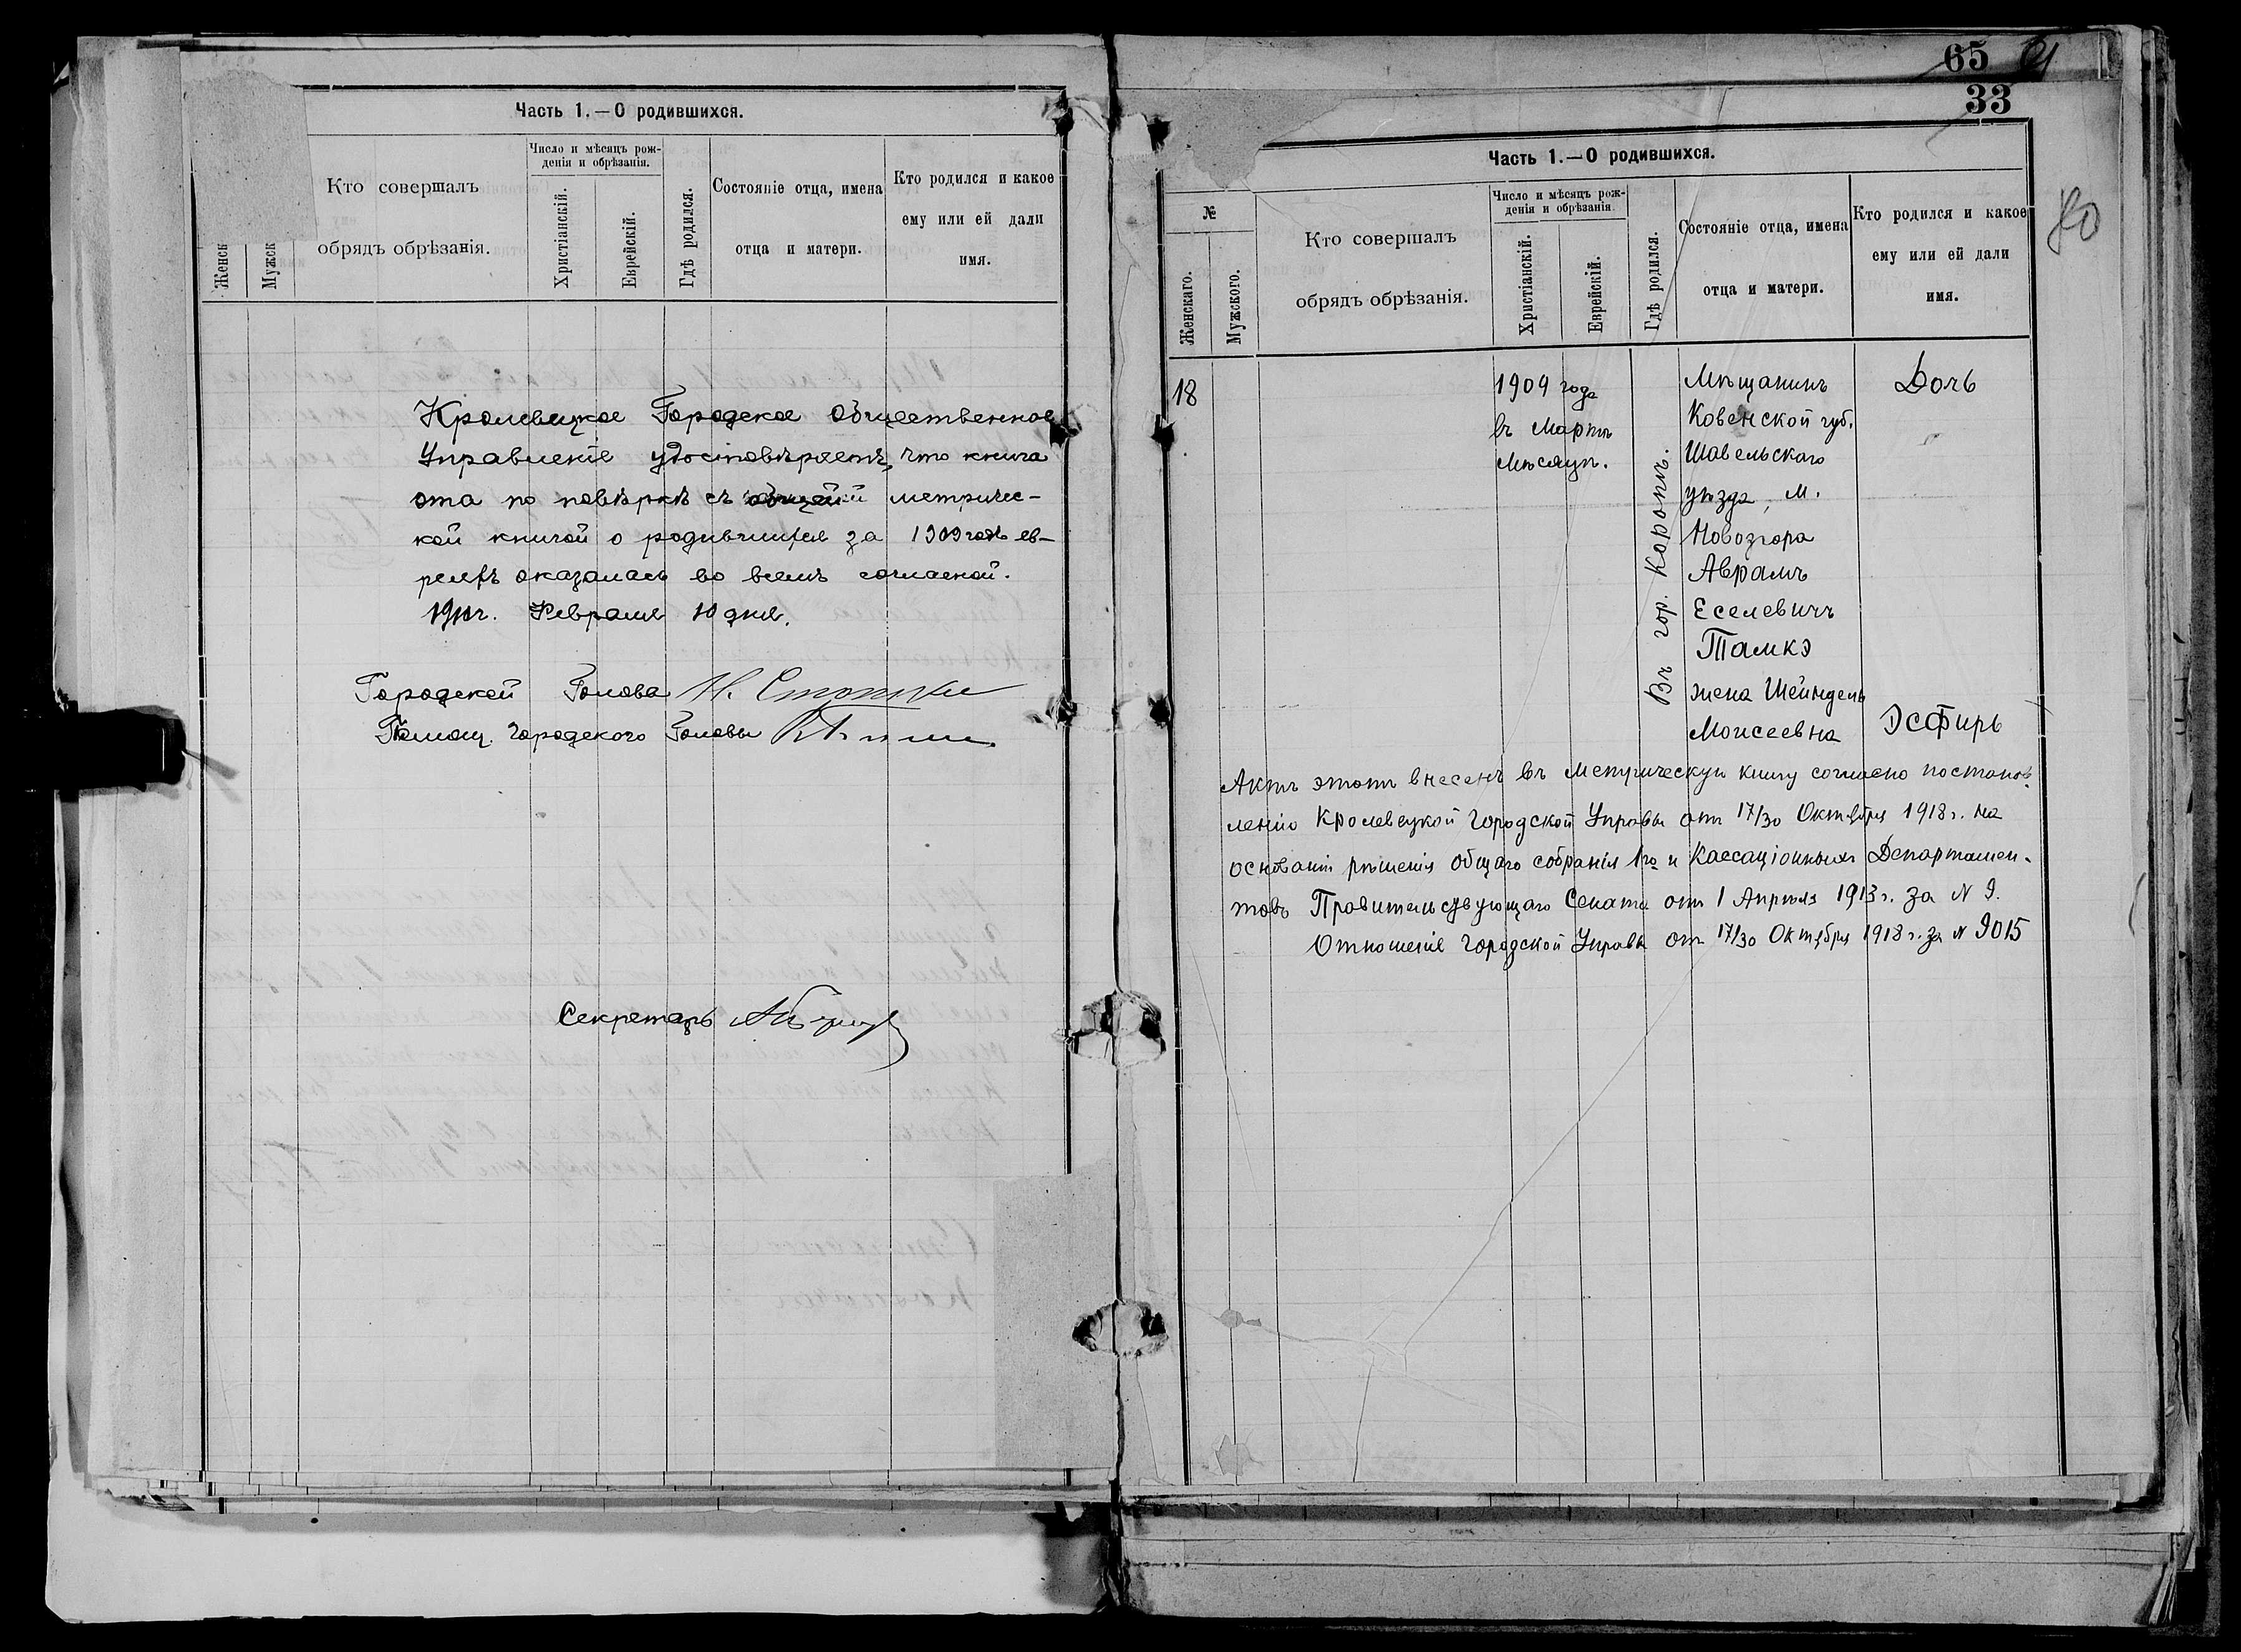 Часть 1.—О родившихся.
Женск
Мужск
Кто совершалъ
обрядъ обрѣзанія.
Число и мѣсяцъ рож-
денія и обрѣзанія.
Христіанскій.
Еврейскій.
Гдѣ родился.
Состояніе отца, имена
отца и матери.
Кто родился и какое
ему или ей дали
имя.
Кролевецкое Городское Общественное
Управленіе удостовѣряетъ, что книга
эта по повѣркѣ съ метричес-
кой книгой о родившихся за 1909 годъ ев-
реевъ оказалась во всемъ согласной.
1910 г. Февраля 10 дня.
Городской Голова Н.
Помощ. Городского Головы
Секретарь
65
33
80
Часть 1.—О родившихся.
№
Женскаго.
Мужского.
Кто совершалъ
обрядъ обрѣзанія.
Число и мѣсяцъ рож-
денія и обрѣзанія
Христіанскій.
Еврейскій.
Гдѣ родился.
Состояніе отца, имена
отца и матери.
Кто родился и какое
ему или ей дали
имя.
18
1909 года
въ Мартѣ
Мѣсяцѣ.
Въ гор. Коропѣ.
Мѣщанинъ
Ковенской губ.
Шавельскаго
уѣзда, м.
Новозгора
Аврамъ
Еселевичъ
Тамкэ
жена Шейндель
Моисеевна
Дочь
Эсфирь
Актъ этотъ внесенъ въ метрическую книгу согласно постанов-
ленію Кролевецкой Городской Управы отъ 17/30 Октября 1918 г. на
основаніи рѣшенія общаго собранія 1го и Кассаціонныхъ Департамен-
товъ Правительствующаго Сената отъ 1 Апрѣля 1913 г. за N 9.
Отношеніе Городской Управы от 17/30 Октября 1918 г. за N 9015